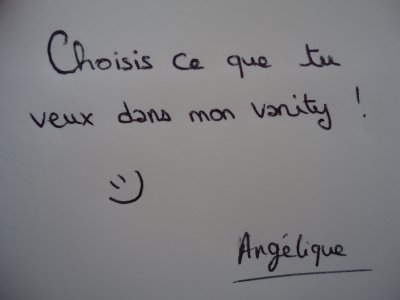 Choisis ce que tu
veux dans mon vanity !
Angélique